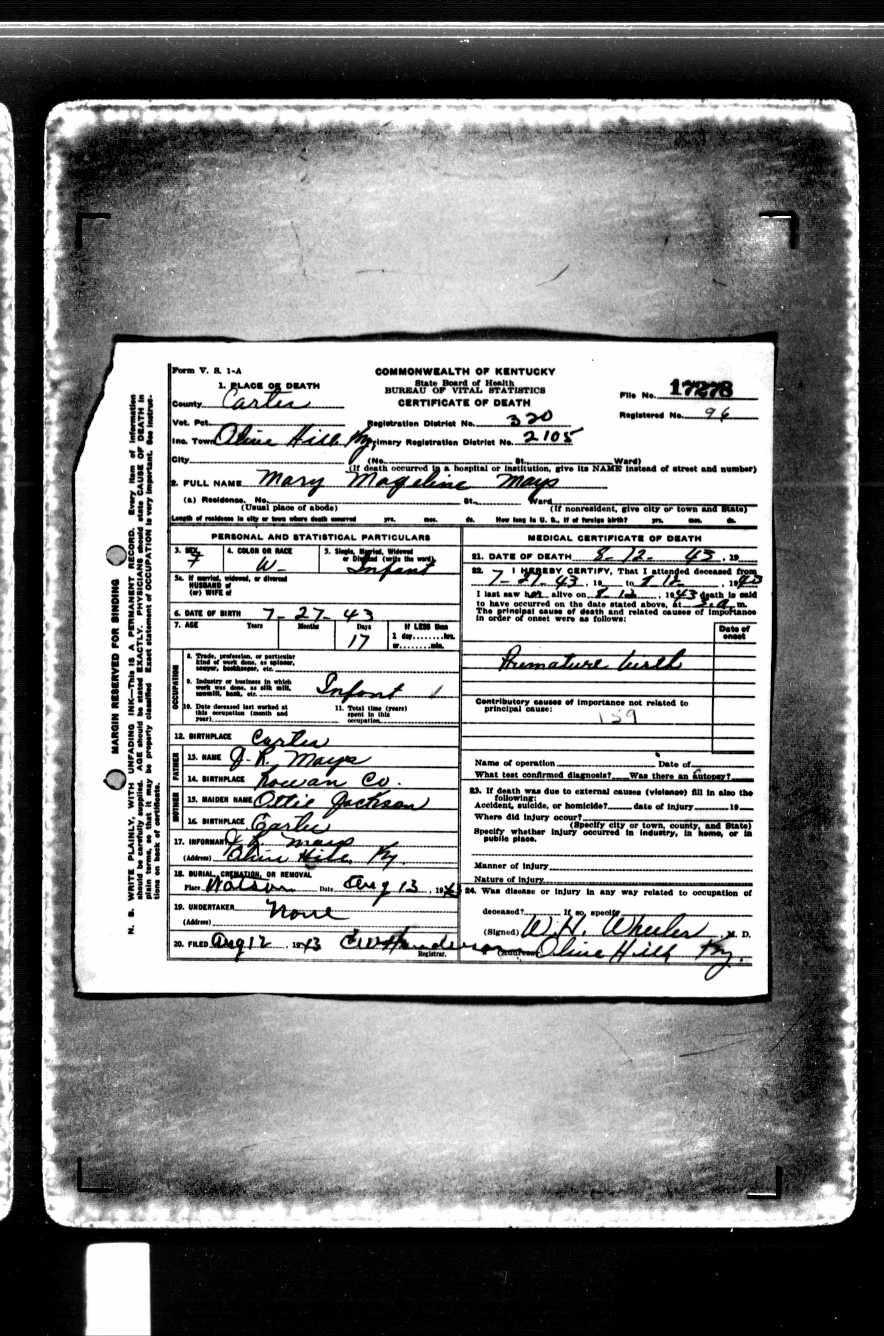 Form V. S. 1-A
COMMONWEALTH OF KENTUCKY
State Board of Health
BUREAU OF VITAL STATISTICS
CERTIFICATE OF DEATH
File No. 17278
Registered No. 96
1. PLACE OF DEATH
County Carter
Vot. Pct. Registration District No. 320
Inc. Town Olive Hill Ky. Primary Registration District No. 2105
City (No. St., Ward)
(If death occurred in a hospital or institution, give its NAME instead of street and number)
2. FULL NAME Mary Mageline Mays
(a) Residence. No. St., Ward
(Usual place of abode) (If nonresident, give city or town and State)
Length of residence in city or town where death occurred yrs. mos. ds. How long in U. S., if of foreign birth? yrs. mos. ds.
PERSONAL AND STATISTICAL PARTICULARS
3. SEX 4. COLOR OR RACE 5. Single, Married, Widowed
or Divorced (write the word)
F W- Infant
5a. If married, widowed, or divorced
HUSBAND of
(or) WIFE of
6. DATE OF BIRTH 7-27-43
7. AGE Years Months Days If LESS than
17 1 day, hrs.
or min.
OCCUPATION
8. Trade, profession, or particular
kind of work done, as spinner,
sawyer, bookkeeper, etc.
9. Industry or business in which
work was done, as silk mill,
sawmill, bank, etc. Infant
10. Date deceased last worked at
this occupation (month and
year)
11. Total time (years)
spent in this
occupation
12. BIRTHPLACE Carter
FATHER
13. NAME J. K. Mays
14. BIRTHPLACE Rowan Co.
MOTHER
15. MAIDEN NAME Ottie Jackson
16. BIRTHPLACE Carter
17. INFORMANT Mays
(Address) Olive Hill, Ky.
18. BURIAL, CREMATION, OR REMOVAL
Place Watson Date Aug 13, 1943
19. UNDERTAKER None
(Address)
20. FILED Aug 12, 1943 Henderson
Registrar.
MEDICAL CERTIFICATE OF DEATH
21. DATE OF DEATH 8-12-43, 19
22. I HEREBY CERTIFY, That I attended deceased from
7-27-43, 19 to 8-12, 1943
I last saw her alive on 8-12, 1943 death is said
to have occurred on the date stated above, at a. m.
The principal cause of death and related causes of importance
in order of onset were as follows:
Date of
onset
Premature birth
Contributory causes of importance not related to
principal cause:
159
Name of operation Date of
What test confirmed diagnosis? Was there an autopsy?
23. If death was due to external causes (violence) fill in also the
following:
Accident, suicide, or homicide? date of injury 19
Where did injury occur?
(Specify city or town, county, and State)
Specify whether injury occurred in industry, in home, or in
public place.
Manner of injury
Nature of injury
24. Was disease or injury in any way related to occupation of
deceased? If so, specify
(Signed) W. H. Wheeler, M. D.
(Address) Olive Hill Ky.
MARGIN RESERVED FOR BINDING
N. B. WRITE PLAINLY, WITH UNFADING INK—This is A PERMANENT RECORD. Every item of information
should be carefully supplied. AGE should be stated EXACTLY. PHYSICIANS should state CAUSE OF DEATH in
plain terms, so that it may be properly classified. Exact statement of OCCUPATION is very important. See instruc-
tions on back of certificate.